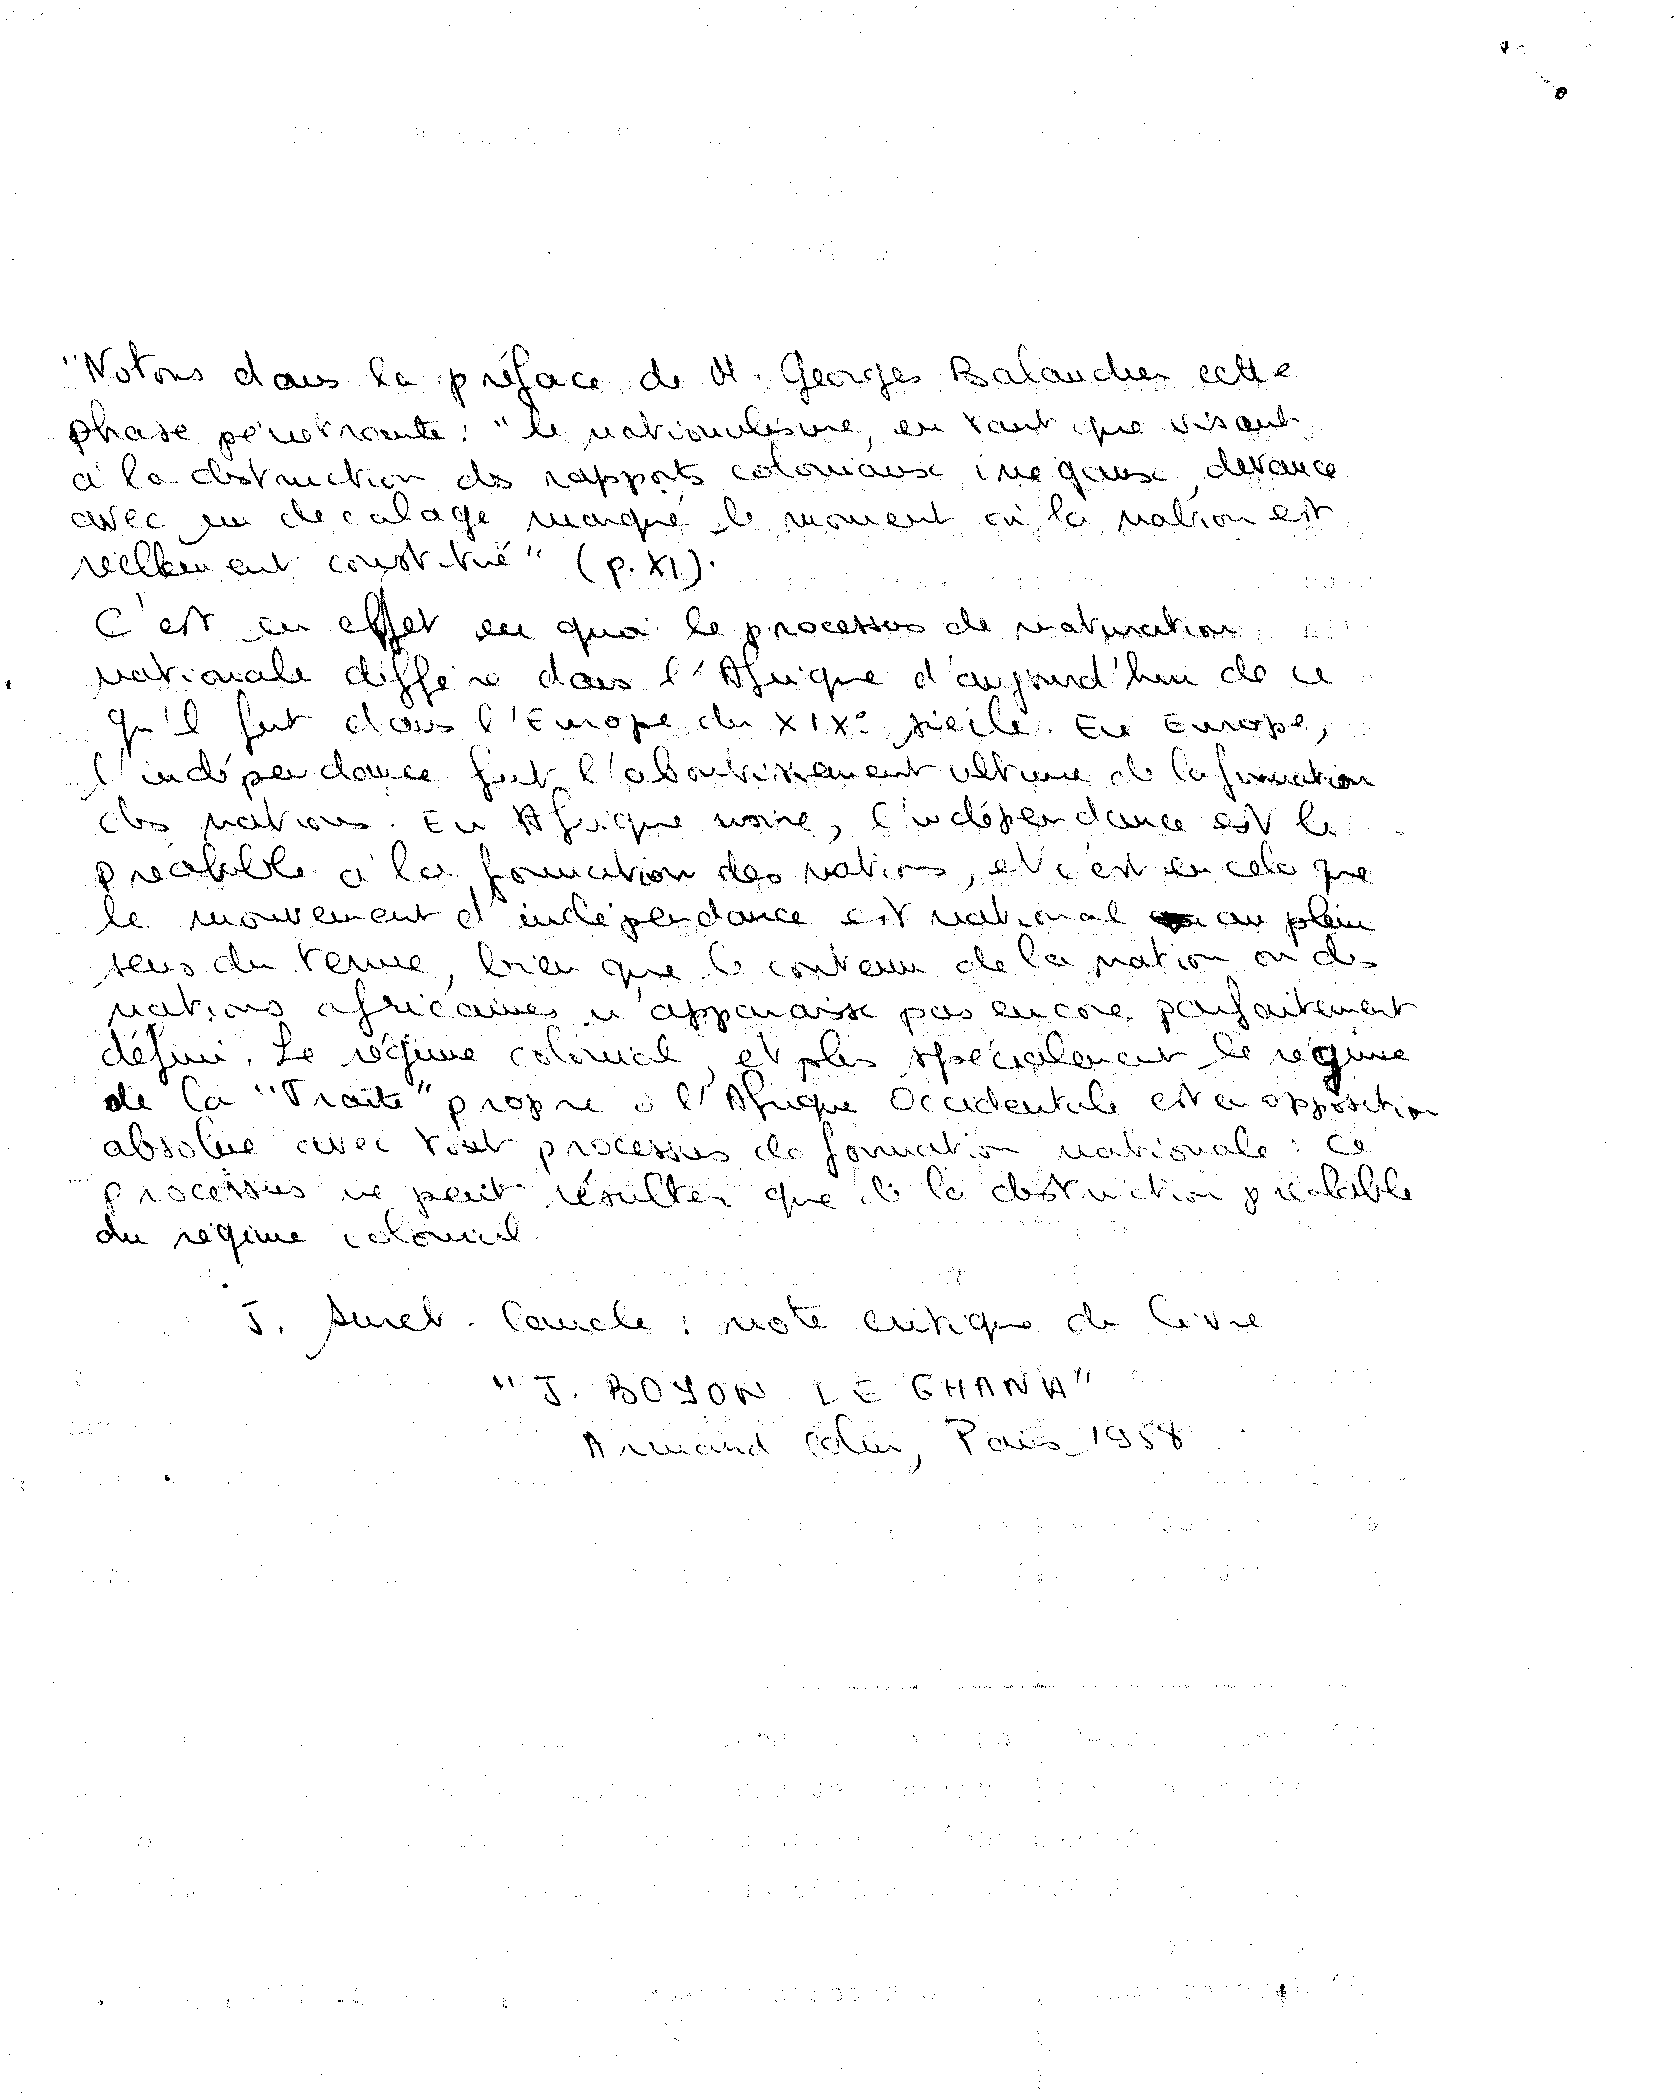 "Notons dans la préface de M. Georges Balandier cette
phase pénétrante : "le nationalisme, en tant que visant
à la destruction des rapports coloniaux inégaux, devance
avec un decalage marqué le moment où la nation est
réellement constitué" (p. XI).
C'est en effet en quoi le processus de maturation
nationale diffère dans l'Afrique d'aujourd'hui de ce
qu'il fut dans l'Europe du XIXe siècle. En Europe,
l'indépendance fut l'aboutissement ultime de la formation
des nations. En Afrique noire, l'indépendance est le
préalable à la formation des nations, et c'est en cela que
le mouvement d'indépendance est national au plein
sens du terme, bien que le contenu de la nation ou des
nations africaines n'apparaisse pas encore parfaitement
défini. Le régime colonial, et plus spécialement le régime
de la "Traite" propre à l'Afrique Occidentale est en opposition
absolue avec tout processus de formation nationale : ce
processus ne peut résulter que de la destruction préalable
du régime colonial.
J. Suret-Canale : note critique du livre
"J. BOYON LE GHANA"
Armand Colin, Paris 1958